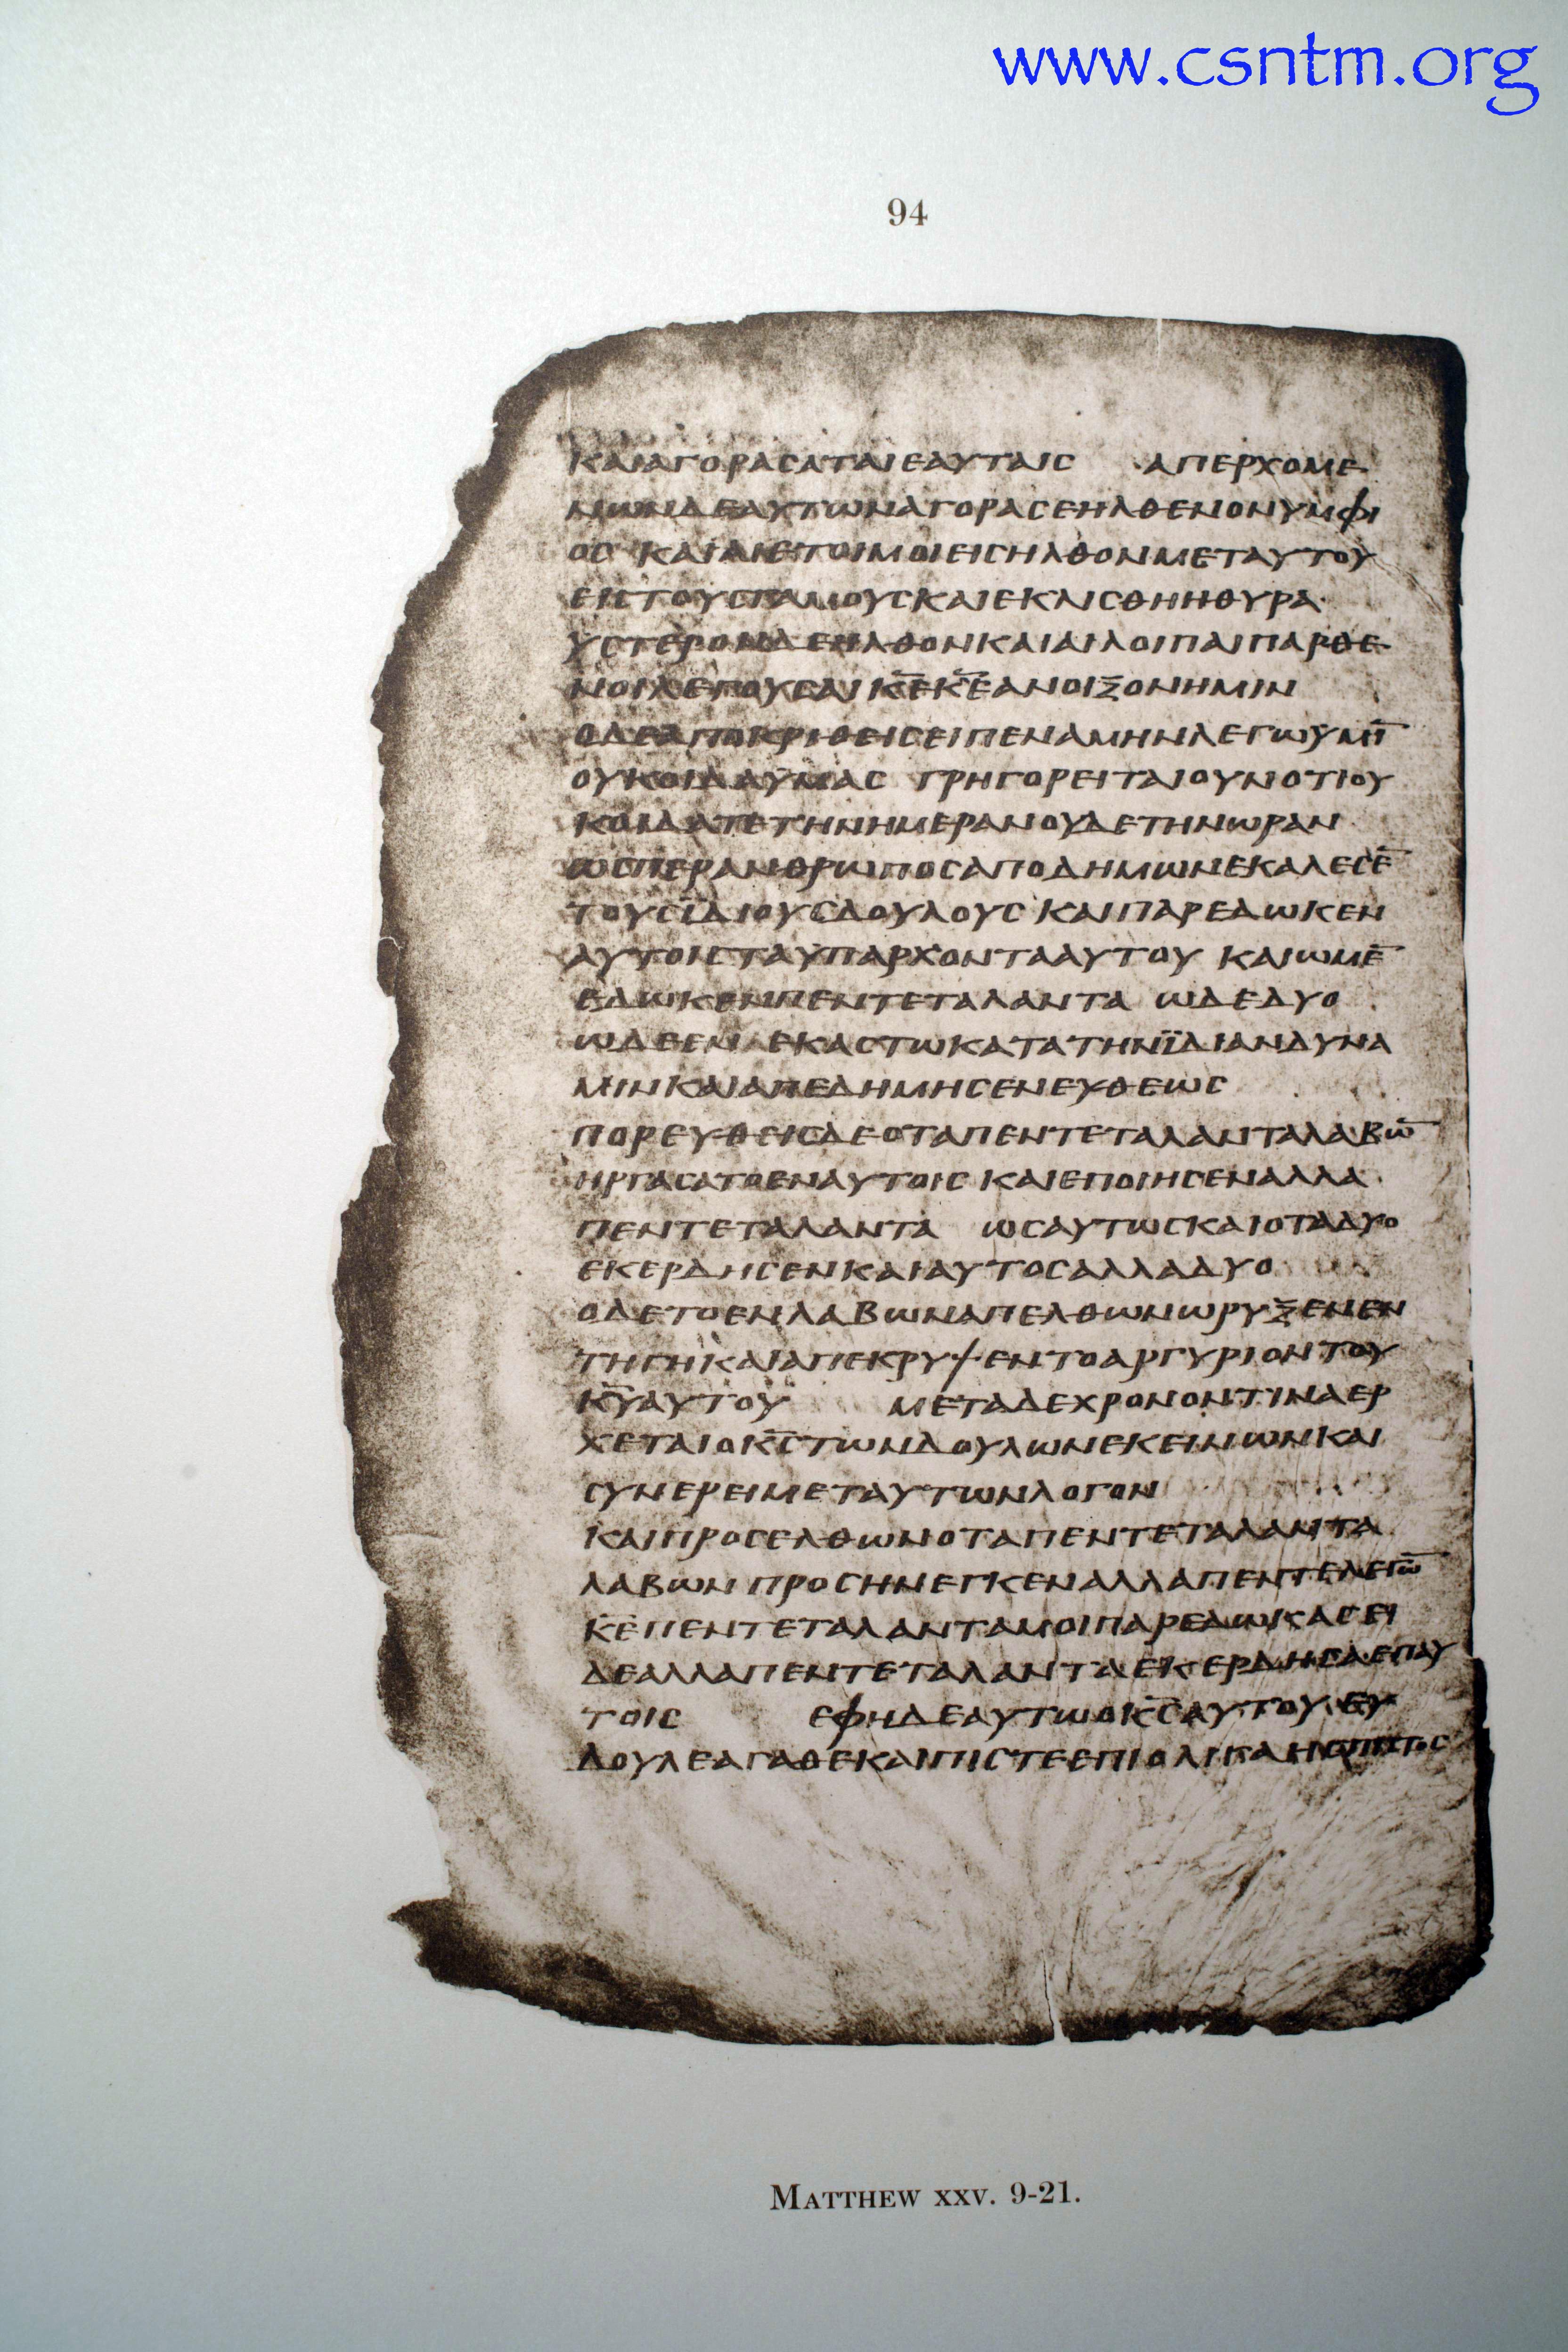 www.csntm.org
94
ΚΑΙΑΓΟΡΑСΑΤΑΙΕΑΥΤΑΙС ΑΠΕΡΧΟΜΕ
ΝωΝΔΕΑΥΤωΝΑΓΟΡΑСΕΗΛΘΕΝΟΝΥΜΦΙ
ΟС ΚΑΙΑΙΕΤΟΙΜΟΙΕΙСΗΛΘΟΝΜΕΤΑΥΤΟΥ
ΕΙСΤΟΥСΓΑΜΟΥСΚΑΙΕΚΛΙСΘΗΗΘΥΡΑ
ΥСΤΕΡΟΝΔΕΗΛΘΟΝΚΑΙΑΙΛΟΙΠΑΙΠΑΡΘΕ
ΝΟΙΛΕΓΟΥСΑΙ Κ̅Ε̅Κ̅Ε̅ΑΝΟΙΞΟΝΗΜΙΝ
ΟΔΕΑΠΟΚΡΙΘΕΙСΕΙΠΕΝΑΜΗΝΛΕΓωΥΜΙ̅
ΟΥΚΟΙΔΑΥΜΑС ΓΡΗΓΟΡΕΙΤΑΙΟΥΝΟΤΙΟΥ
ΚΟΙΔΑΤΕΤΗΝΗΜΕΡΑΝΟΥΔΕΤΗΝωΡΑΝ
ωСΠΕΡΑΝΘΡωΠΟСΑΠΟΔΗΜωΝΕΚΑΛΕСΕ̅
ΤΟΥСΪΔΙΟΥСΔΟΥΛΟΥС ΚΑΙΠΑΡΕΔωΚΕΝ
ΑΥΤΟΙСΤΑΥΠΑΡΧΟΝΤΑΑΥΤΟΥ ΚΑΙωΜΕ̅
ΕΔωΚΕΝΠΕΝΤΕΤΑΛΑΝΤΑ ωΔΕΔΥΟ
ωΔΕΕΝ ΕΚΑСΤωΚΑΤΑΤΗΝΪΔΙΑΝΔΥΝΑ
ΜΙΝΚΑΙΑΠΕΔΗΜΗСΕΝΕΥΘΕωС
ΠΟΡΕΥΘΕΙСΔΕΟΤΑΠΕΝΤΕΤΑΛΑΝΤΑΛΑΒω̅
ΗΡΓΑСΑΤΟΕΝΑΥΤΟΙС ΚΑΙΕΠΟΙΗСΕΝΑΛΛΑ
ΠΕΝΤΕΤΑΛΑΝΤΑ ωСΑΥΤωСΚΑΙΟΤΑΔΥΟ
ΕΚΕΡΔΗСΕΝΚΑΙΑΥΤΟСΑΛΛΑΔΥΟ
ΟΔΕΤΟΕΝΛΑΒωΝΑΠΕΛΘωΝωΡΥΞΕΝΕΝ
ΤΗΓΗΚΑΙΑΠΕΚΡΥΨΕΝΤΟΑΡΓΥΡΙΟΝΤΟΥ
Κ̅Υ̅ΑΥΤΟΥ ΜΕΤΑΔΕΧΡΟΝΟΝΤΙΝΑΕΡ
ΧΕΤΑΙΟΚ̅С̅ΤωΝΔΟΥΛωΝΕΚΕΙΝωΝΚΑΙ
СΥΝΕΡΕΙΜΕΤΑΥΤωΝΛΟΓΟΝ
ΚΑΙΠΡΟСΕΛΘωΝΟΤΑΠΕΝΤΕΤΑΛΑΝΤΑ
ΛΑΒωΝΠΡΟСΗΝΕΓΚΕΝΑΛΛΑΠΕΝΤΕΛΕΓω̅
Κ̅Ε̅ΠΕΝΤΕΤΑΛΑΝΤΑΜΟΙΠΑΡΕΔωΚΑСΕΙ
ΔΕΑΛΛΑΠΕΝΤΕΤΑΛΑΝΤΑΕΚΕΡΔΗСΑΕΠΑΥ
ΤΟΙС ΕΦΗΔΕΑΥΤωΟΚ̅С̅ΑΥΤΟΥ ΕΥ
ΔΟΥΛΕΑΓΑΘΕΚΑΙΠΙСΤΕΕΠΙΟΛΙΓΑΗСΠΙСΤΟС
MATTHEW XXV. 9-21.